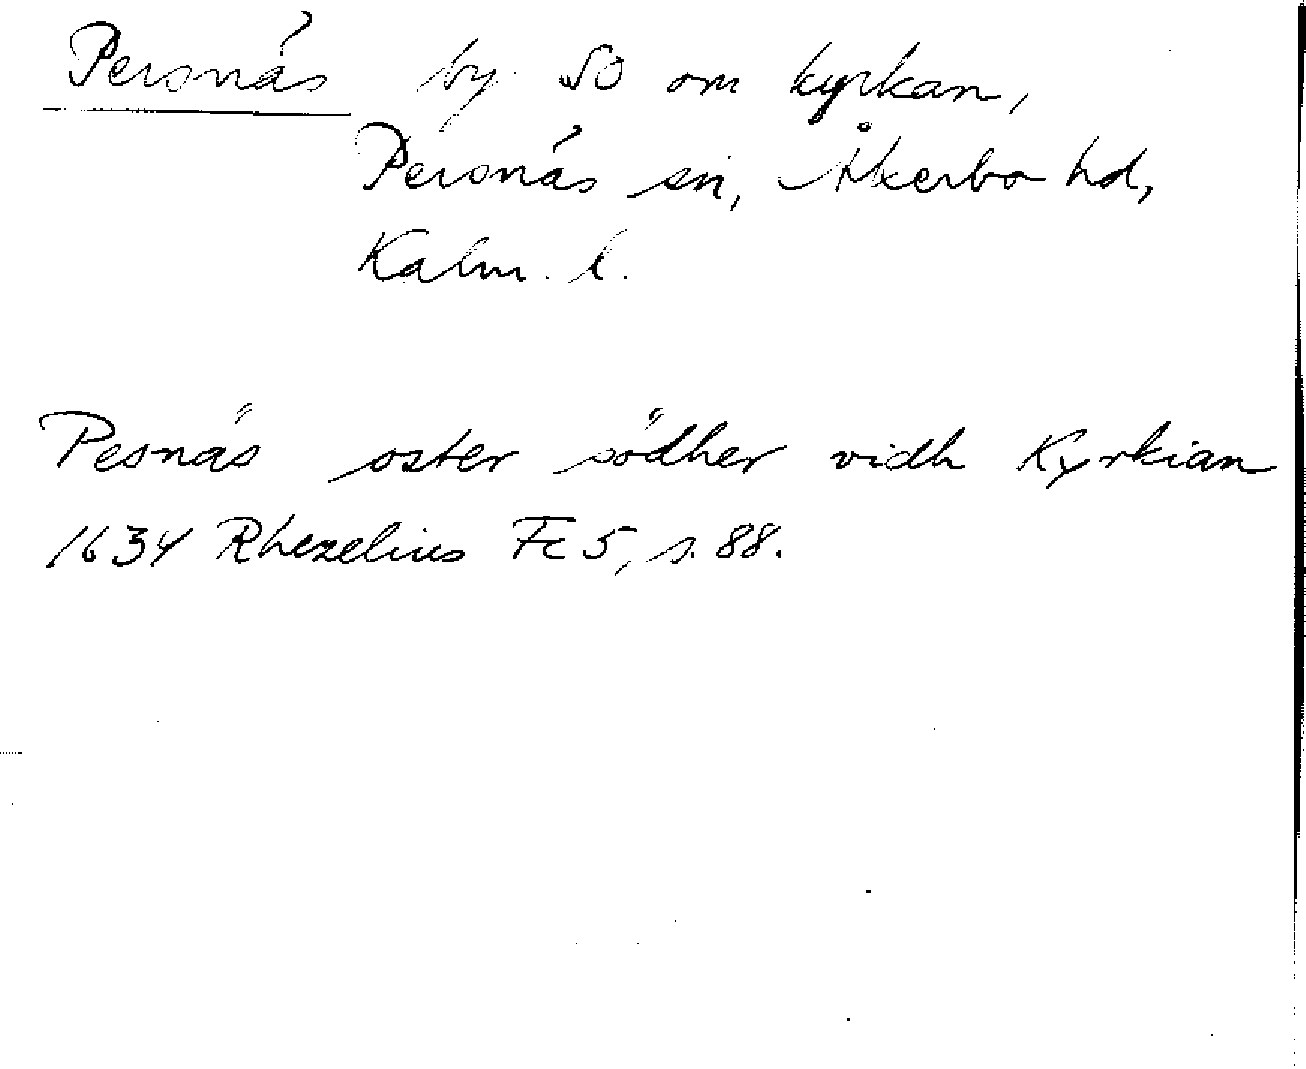 Persnäs by SO om kyrkan,
Persnäs sn, Åkerbo hd,
Kalm. l.
Pesnäs oster södher vidh Kyrkian
1634 Rhezelius Fc 5, s. 88.